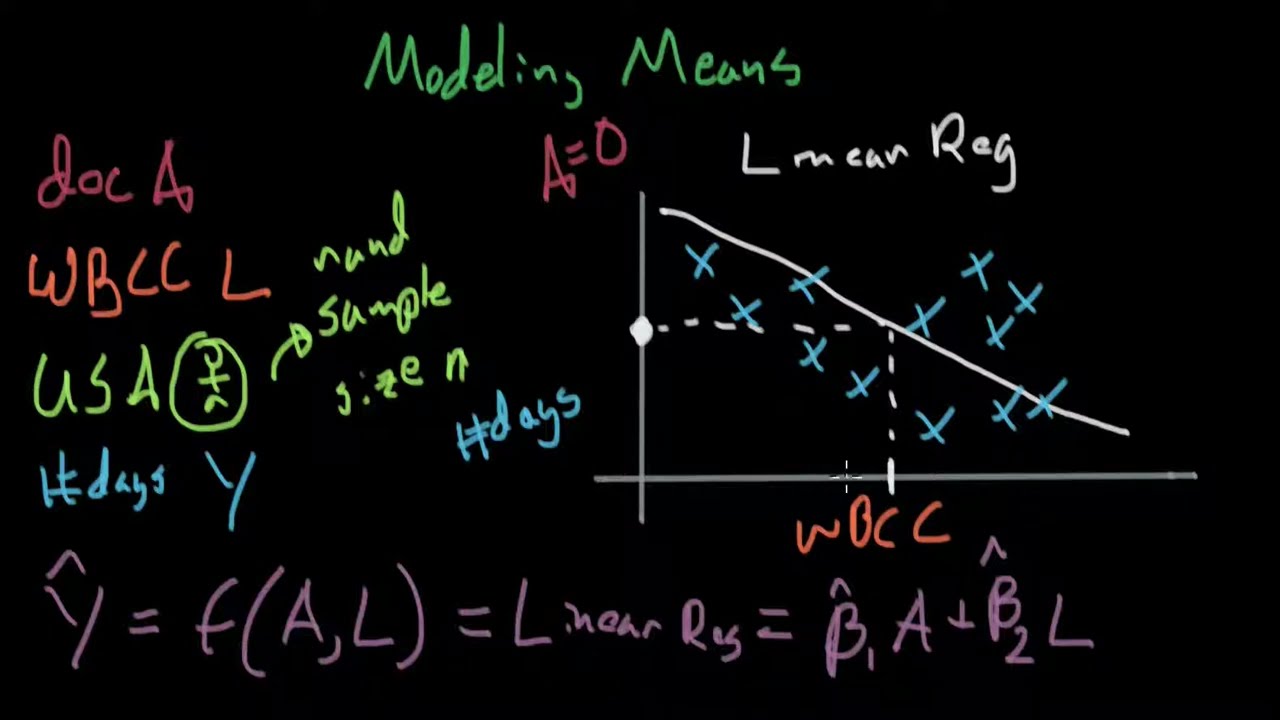 Modeling Means
doc A
WBCC L
USA
rand
sample
size n
#days Y
A=0
Linear Reg
#days
WBCC
Ŷ = f(A,L) = Linear Reg = β̂₁ A + β̂₂ L